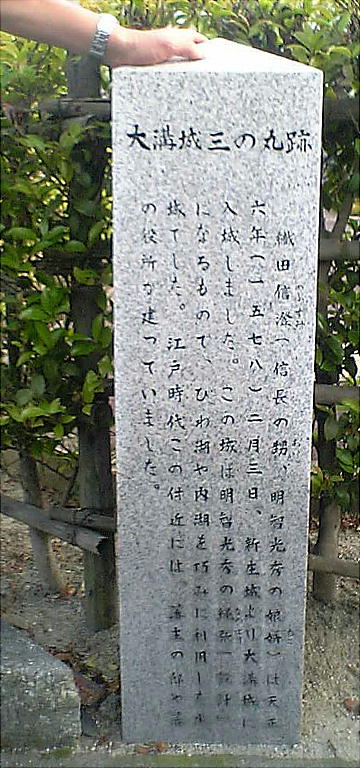 大溝城三の丸跡
織田信澄(信長の甥、明智光秀の娘婿)は天正
六年(一五七八)二月三日、新庄城より大溝城に
入城しました。この城は明智光秀の縄張(設計)
になるもので、びわ湖や内湖を巧みに利用した水
城でした。江戸時代この付近には、藩主の邸や藩
の役所が建っていました。